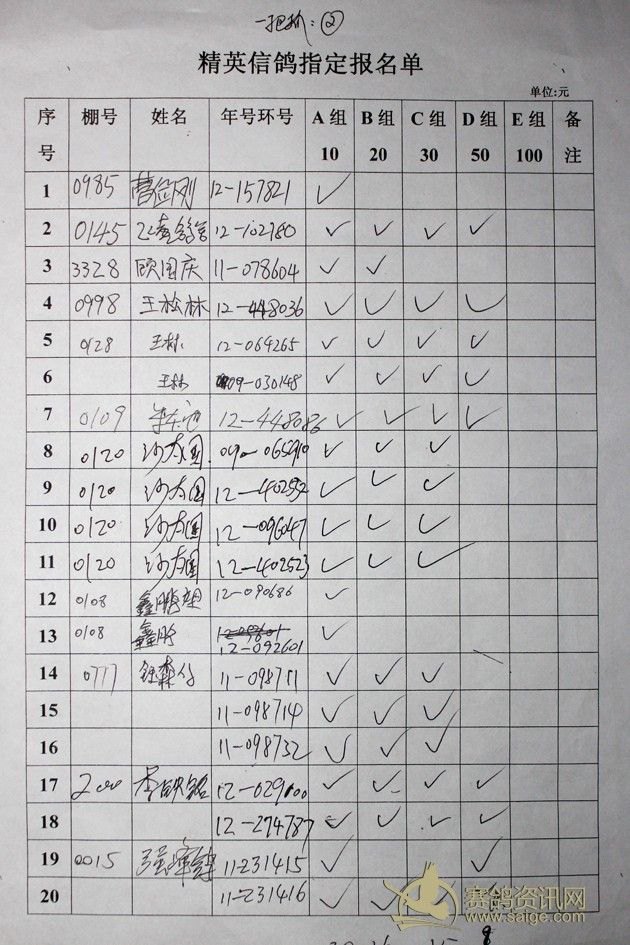 一把抓：②
精英信鸽指定报名单
单位:元
序号 棚号 姓名 年号环号 A组10 B组20 C组30 D组50 E组100 备注
1 0985 12-157821 ✓
2 0145 12-102780 ✓ ✓ ✓ ✓
3 3328 顾国庆 11-078604 ✓ ✓
4 0998 王松林 12-448036 ✓ ✓ ✓ ✓
5 0128 王林 12-064265 ✓ ✓ ✓ ✓
6 王林 09-030148 ✓ ✓ ✓ ✓
7 0109 12-448086 ✓ ✓ ✓ ✓
8 0120 沙友国 09-065910 ✓ ✓ ✓
9 0120 沙友国 ✓ ✓ ✓
10 0120 沙友国 12-096047 ✓ ✓ ✓
11 0120 沙友国 12-402523 ✓ ✓ ✓
12 0108 12-090686 ✓
13 0108 12-092601 ✓
14 0777 11-098711 ✓ ✓ ✓
15 11-098714 ✓ ✓ ✓
16 11-098732 ✓ ✓ ✓
17 12-029100 ✓ ✓ ✓ ✓
18 12-274787 ✓ ✓ ✓ ✓
19 0015 11-231415 ✓ ✓
20 11-231416 ✓ ✓ ✓ ✓
赛鸽资讯网
www.saige.com